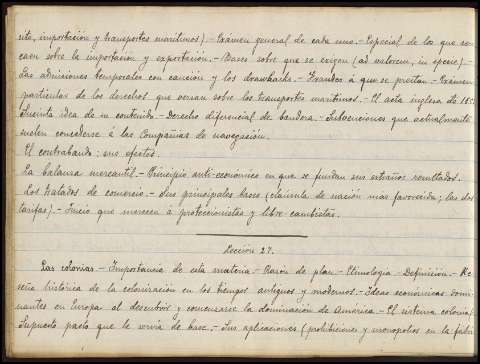 sito, importación y transportes marítimos).- Examen general de cada uno.- Especial de los que re-
caen sobre la importación y exportación.- Bases sobre que se exigen (ad valorem, in specie).-
Las admisiones temporales con caución y los drawbacks.- Fraudes a que se prestan.- Examen
particular de los derechos que versan sobre los transportes marítimos.- El acta inglesa de
Sucinta idea de su contenido.- Derecho diferencial de bandera.- Subvenciones que actualmente
suelen concederse á las Compañías de navegación.
El contrabando; sus efectos.
La balanza mercantil.- Principio anti-económico en que se fundan sus extraños resultados.
Los tratados de comercio.- Sus principales bases (cláusula de nación mas favorecida; las dos
tarifas).- Juicio que merecen á proteccionistas y libre cambistas.
Lección 27.
Las colonias.- Importancia de esta materia.- Razón de plan.- Etimología.- Definición.- Re-
seña histórica de la colonización en los tiempos antiguos y modernos.- Ideas económicas domi-
nantes en Europa al descubrir y comenzarse la dominación de América.- El sistema colonial
Supuesto pacto que le servía de base.- Sus aplicaciones (prohibiciones y monopolios en la fabri